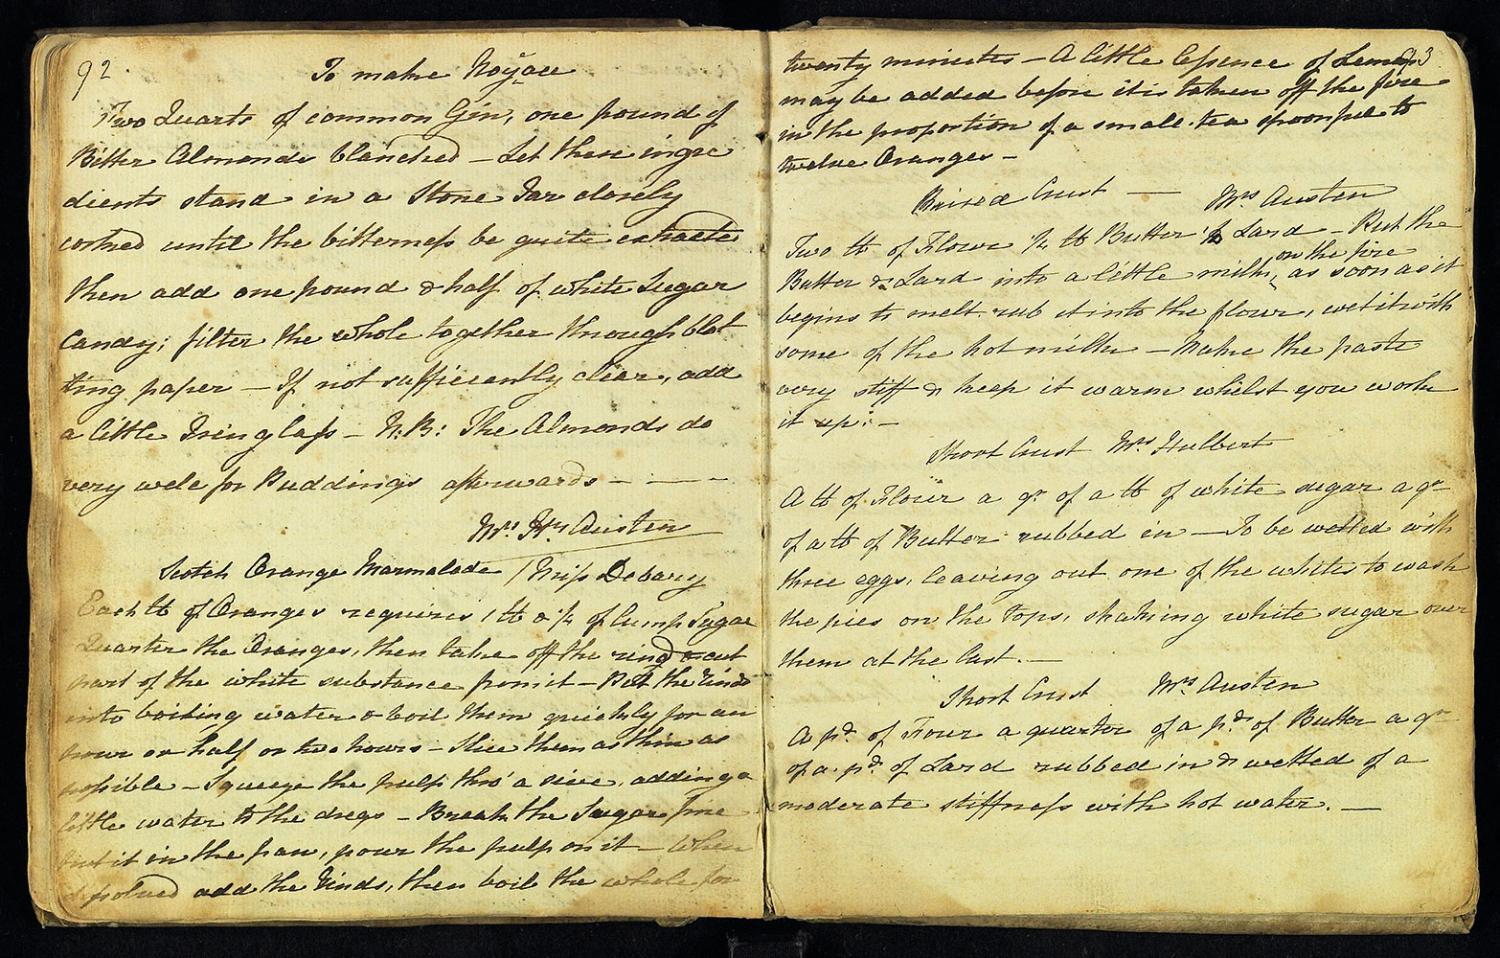 92.
To make Noyau
Two Quarts of common Gin, one pound of
Bitter Almonds blanched – Let these ingre
dients stand in a Stone Jar closely
corked until the bitterness be quite extracted
then add one pound & half of white Sugar
Candy; filter the whole together through blot
ting paper – If not sufficiently clear, add
a little Isinglass – N:B: The Almonds do
very well for Puddings afterwards – – –
Mrs. Hy. Austen
Scotch Orange Marmalade / Miss Debary
Each lb of Oranges requires 1 lb & ½ of Lump Sugar
Quarter the Oranges, then take off the rind & cut
part of the white substance from it – Put the rinds
into boiling water & boil them quickly for an
hour & half or two hours – Slice them as thin as
possible – Squeeze the pulp thro' a sieve, adding a
little water to the dregs – Break the Sugar fine
put it in the pan, pour the pulp on it – when
dissolved add the rinds, then boil the whole for
93
twenty minutes – A little Essence of Lemon
may be added before it is taken off the fire
in the proportion of a small tea spoonful to
twelve Oranges –
Raised Crust — Mrs Austen
Two lb of Flour ½ lb Butter ¼ Lard – Put the
Butter & Lard into a little milk, on the fire as soon as it
begins to melt rub it into the flour, wet it with
some of the hot milk – Make the paste
very stiff & keep it warm whilst you work
it up: –
Short Crust Mrs Hulbert
A lb of Flour a qr of a lb of white sugar a qr
of a lb of Butter rubbed in – To be wetted with
three eggs, leaving out one of the whites to wash
the pies on the tops, shaking white sugar over
them at the last. –
Short Crust Mrs Austen
A pd. of Flour a quarter of a pd. of Butter a qr
of a pd. of Lard rubbed in & wetted of a
moderate stiffness with hot water. —